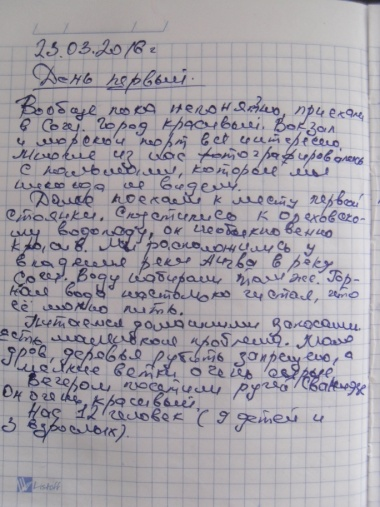 23.03.2018 г
День первый.
Вообще пока непонятно, приехали
в Сочи. Город красивый. Вокзал
и морской порт всё интересно,
многие из нас фотографировались
с пальмами, которые мы
никогда не видели.
Далее поехали к месту первой
стоянки. Спустились к Ореховско-
му водопаду, он необыкновенно
красив. Мы расположились у
впадения реки Ажва в реку
Сочи. Воду набирали там же. Гор-
ная вода настолько чистая, что
её можно пить.
Питаемся домашними запасами
есть маленькая проблема. Мало
дров, деревья рубить запрещено, а
мелкие ветки очень сырые.
Вечером посетили ручей
Он очень красивый.
Нас 12 человек (9 детей и
3 взрослых).